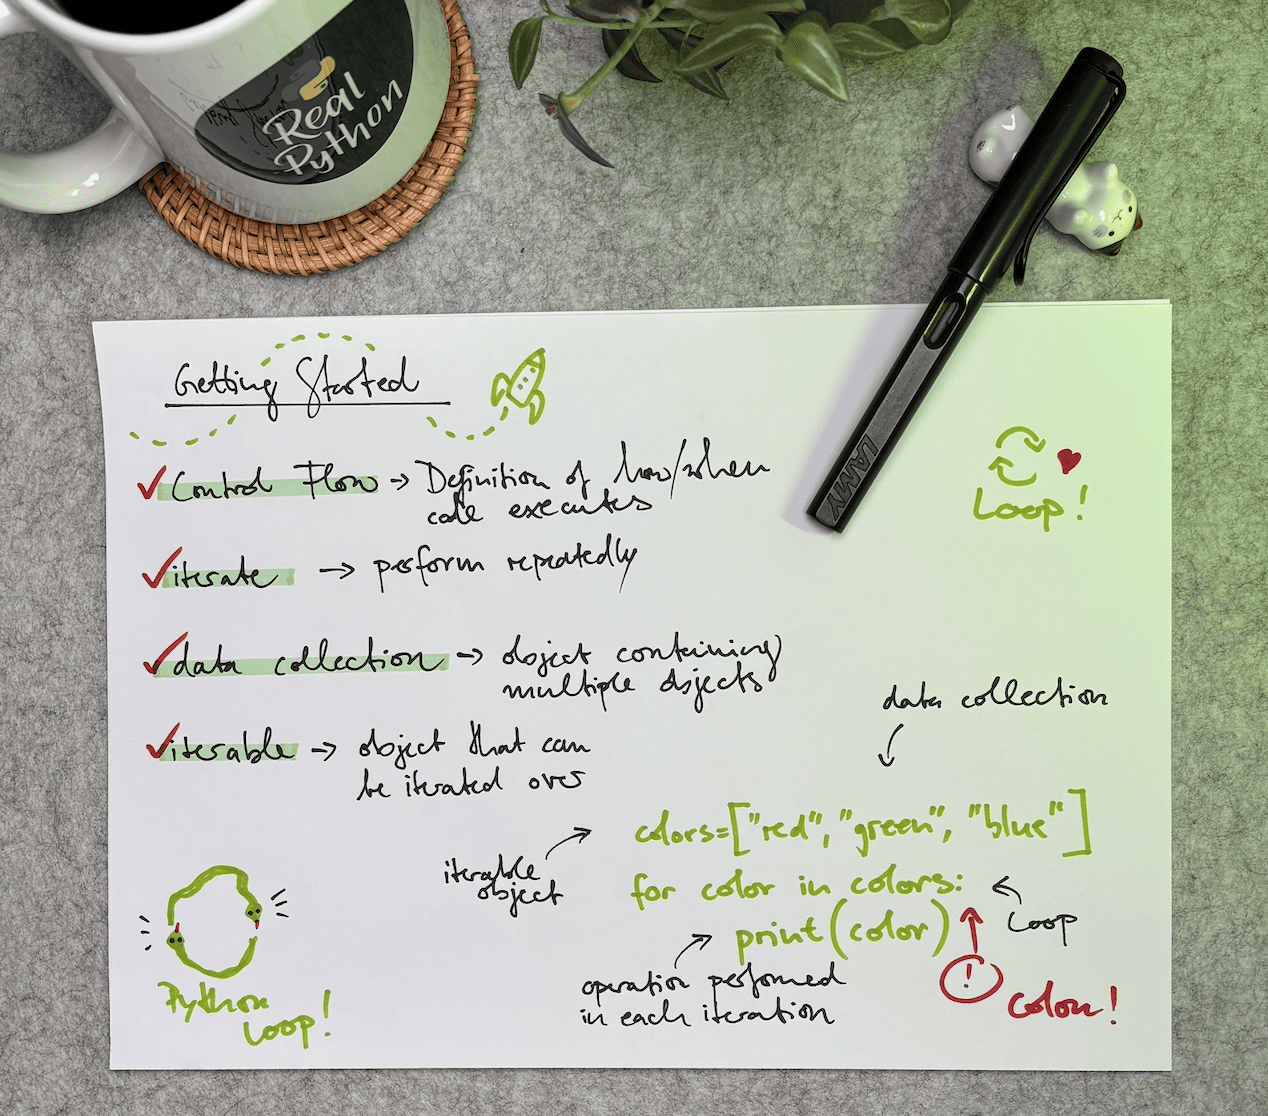 Real
Python
LAMY
Getting Started
Control Flow → Definition of how/when
code executes
Loop!
iterate → perform repeatedly
data collection → object containing
multiple objects
data collection
iterable → object that can
be iterated over
colors=["red", "green", "blue"]
iterable
object
for color in colors:
Loop
print(color)
operation performed
in each iteration
!
colon!
Python
Loop!